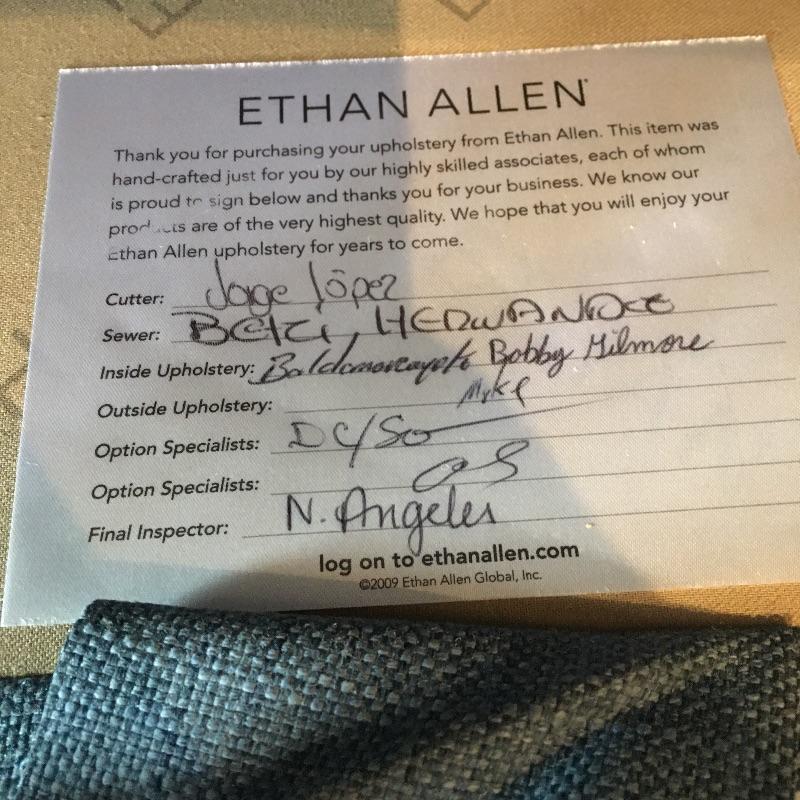 ETHAN ALLEN
Thank you for purchasing your upholstery from Ethan Allen. This item was
hand-crafted just for you by our highly skilled associates, each of whom
is proud to sign below and thanks you for your business. We know our
products are of the very highest quality. We hope that you will enjoy your
Ethan Allen upholstery for years to come.
Cutter: Jorge López
Sewer:
Inside Upholstery: Bobby Gilmore
Outside Upholstery: Myke
Option Specialists: DC/So
Option Specialists:
Final Inspector: N. Angeles
log on to ethanallen.com
©2009 Ethan Allen Global, Inc.